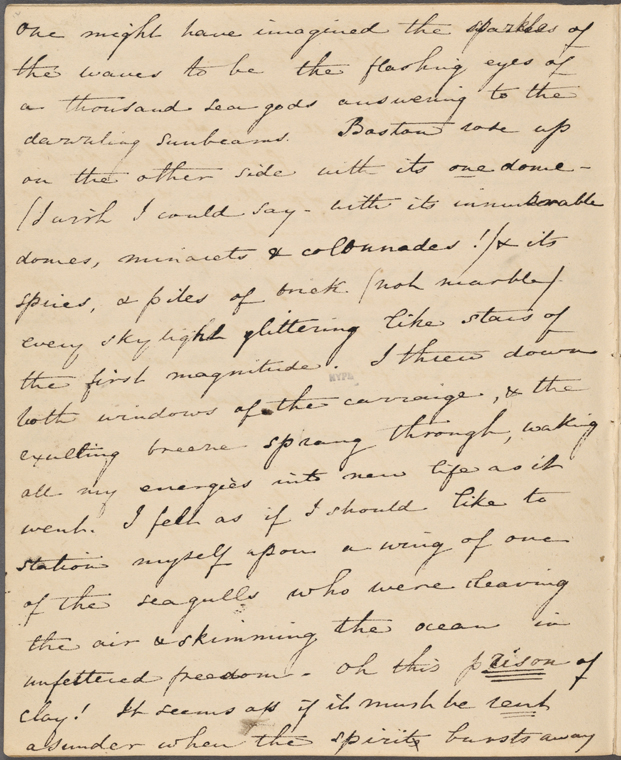 One might have imagined the sparkles of
the waves to be the flashing eyes of
a thousand sea gods answering to the
dazzling sunbeams. Boston rose up
on the other side with its one dome -
(I wish I could say - with its innumerable
domes, minarets & colonnades!) & its
spires, & piles of brick (not marble)
every skylight glittering like stars of
the first magnitude. I threw down
NYPL
both windows of the carraige, & the
exulting breeze sprang through, waking
all my energies into new life as it
went. I felt as if I should like to
station myself upon a wing of one
of the seagulls who were cleaving
the air & skimming the ocean in
unfettered freedom - oh this prison of
clay! It seems as if it must be rent
asunder when the spirit bursts away